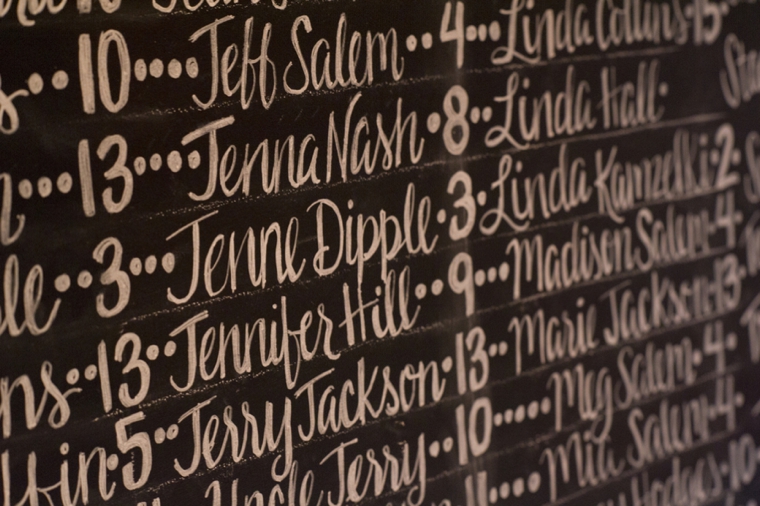 10 .... Jeff Salem .. 4 ... Linda Collins . 15
13 .... Jenna Nash . 8 .. Linda Hall .
3 ... Jenne Dipple . 3 . Linda Kamzelki . 2
13 .. Jennifer Hill .. 9 ... Madison Salem . 4
5 .. Jerry Jackson . 13 .. Marie Jackson . 13
Uncle Jerry .. 10 ..... Meg Salem . 4
11 .... Mia Salem . 4
Hodges . 10